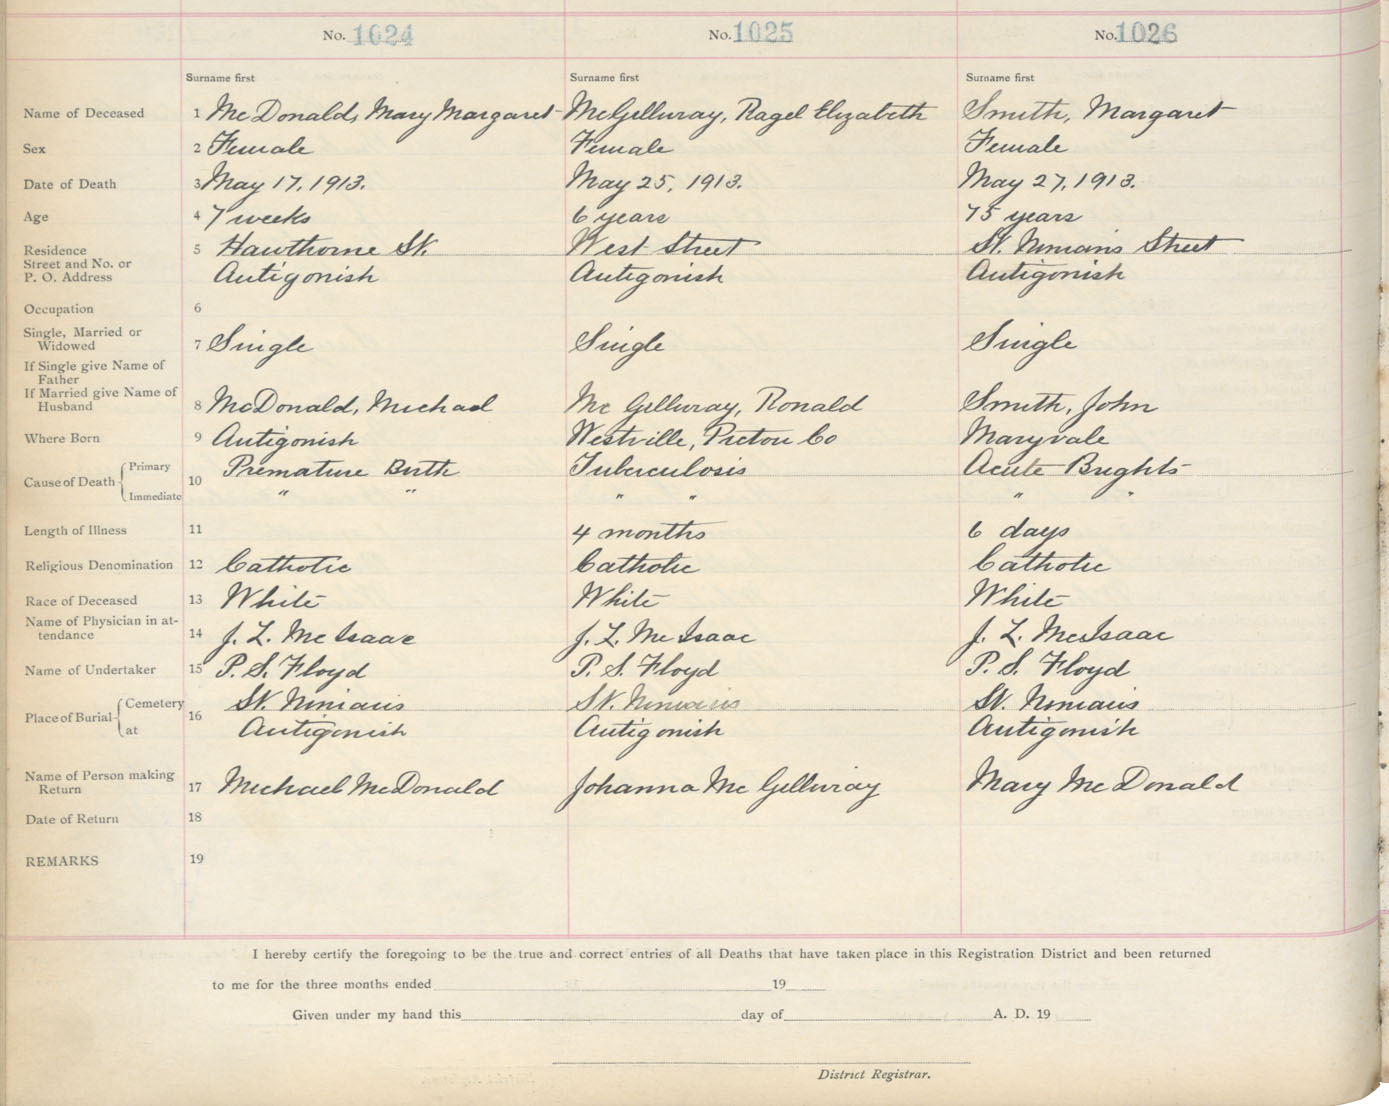 No. 1024 No. 1025 No. 1026
Surname first Surname first Surname first
Name of Deceased 1 McDonald, Mary Margaret McGillivray, Ragel Elizabeth Smith, Margaret
Sex 2 Female Female Female
Date of Death 3 May 17, 1913. May 25, 1913. May 27, 1913.
Age 4 7 weeks 6 years 75 years
Residence 5 Hawthorne St. West Street St. Ninians Street
Street and No. or
P. O. Address Antigonish Antigonish Antigonish
Occupation 6
Single, Married or
Widowed 7 Single Single Single
If Single give Name of
Father
If Married give Name of
Husband 8 McDonald, Michael Mc Gillivray, Ronald Smith, John
Where Born 9 Antigonish Westville, Pictou Co Maryvale
Cause of Death Primary 10 Premature Birth Tuberculosis Acute Brights
Immediate " " " " " "
Length of Illness 11 4 months 6 days
Religious Denomination 12 Catholic Catholic Catholic
Race of Deceased 13 White White White
Name of Physician in at-
tendance 14 J. L. McIsaac J. L. McIsaac J. L. McIsaac
Name of Undertaker 15 P. S. Floyd P. S. Floyd P. S. Floyd
Place of Burial Cemetery 16 St. Ninians St. Ninians St. Ninians
at Antigonish Antigonish Antigonish
Name of Person making
Return 17 Michael McDonald Johanna Mc Gillivray Mary McDonald
Date of Return 18
REMARKS 19
I hereby certify the foregoing to be the true and correct entries of all Deaths that have taken place in this Registration District and been returned
to me for the three months ended 19
Given under my hand this day of A. D. 19
District Registrar.